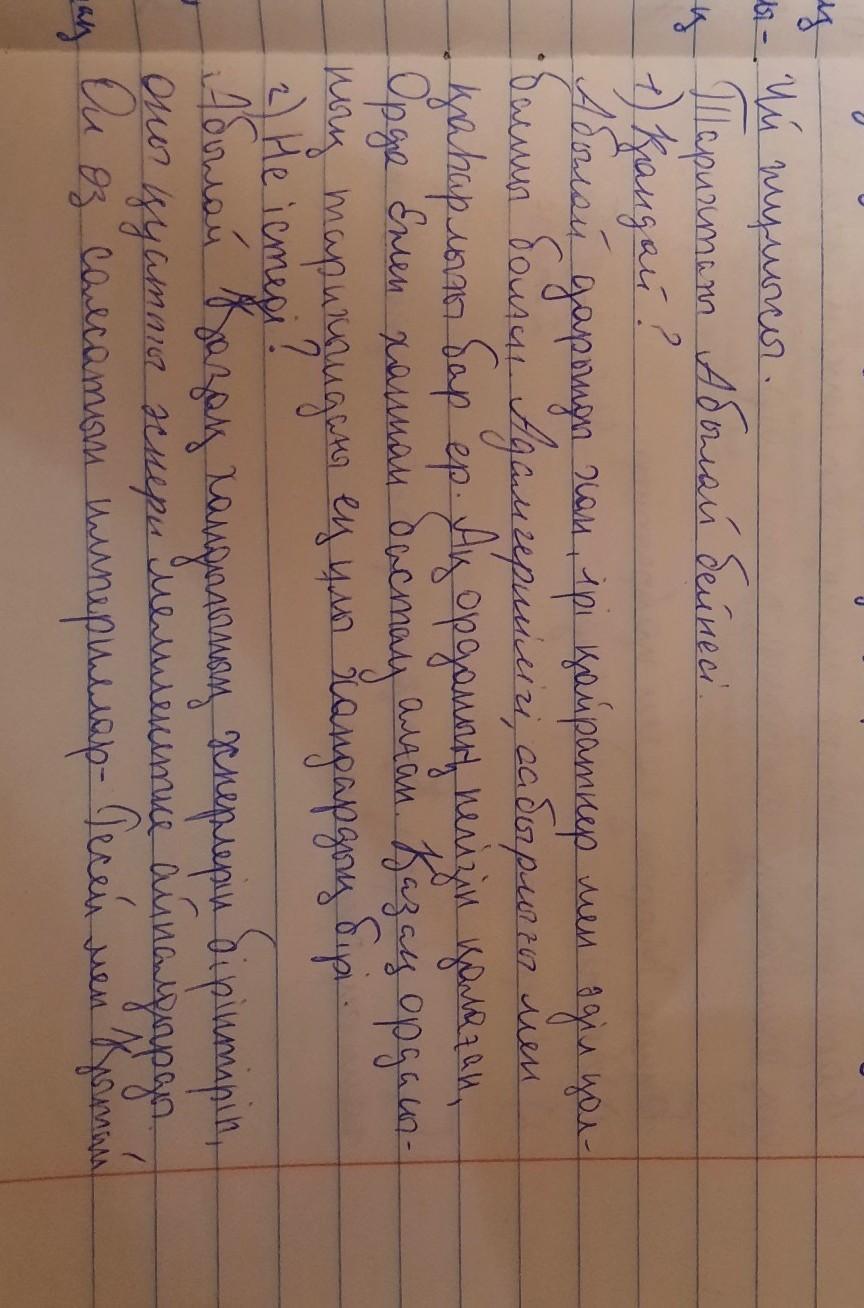 Үй жұмысы.
Тарихтағы Абылай бейнесі.
1) Қандай?
Абылай дарынды хан, ірі қайраткер мен әділ қол-
басшы болған. Адамгершілігі, сабырлығы мен
қаһарлығы бар ер. Ақ орданың негізін қалаған,
Орда Ежен ханнан бастау алған. Қазақ ордасы-
ның тарихындағы ең ұлы хандардың бірі.
2) Не істеді?
Абылай Қазақ хандығының жерлерін біріктіріп,
оны қуатты жәнері мемлекетке айналдырды.
Ол өз саясатын империялар- Ресей мен Қытай